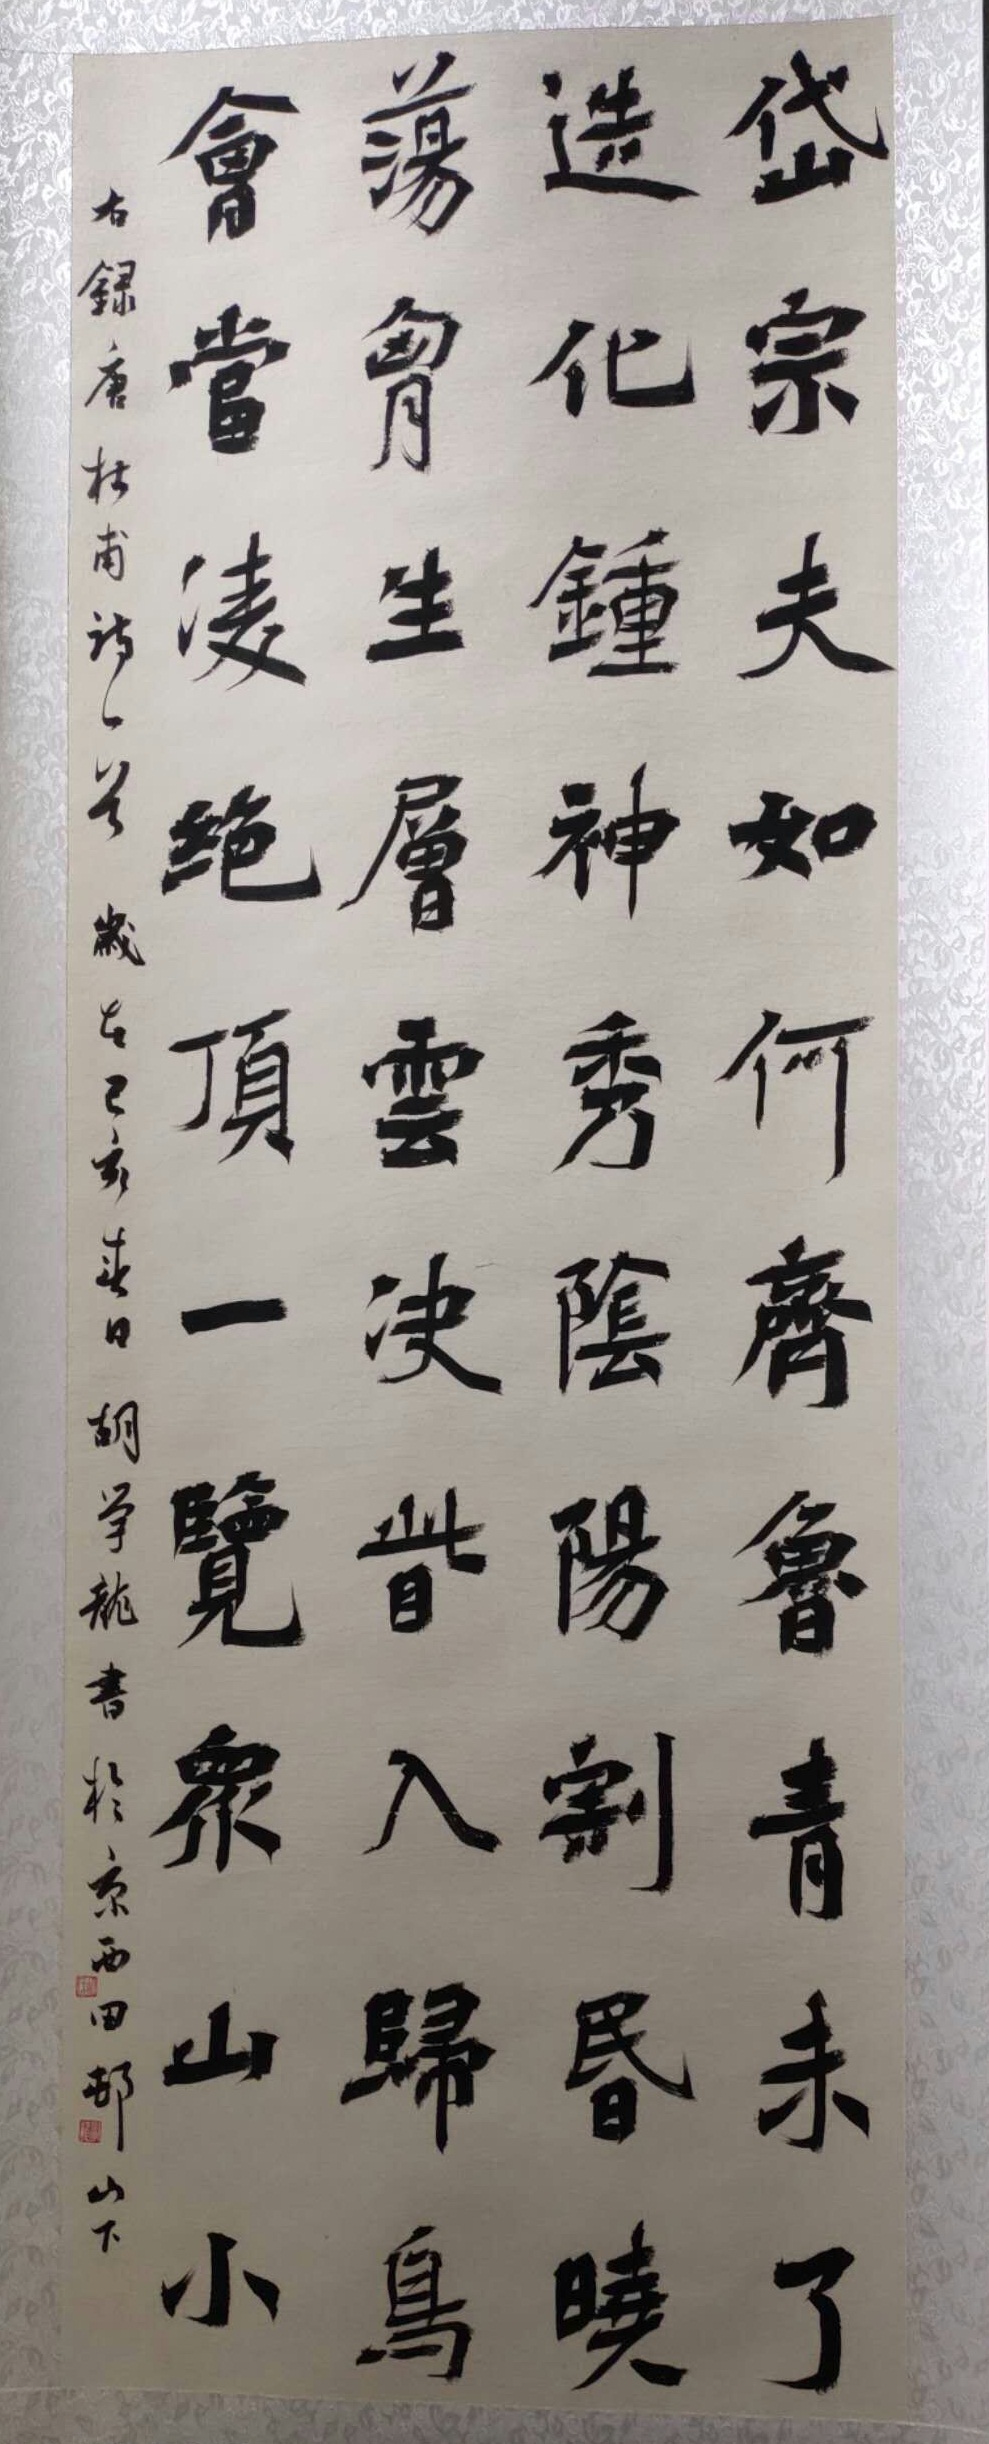 岱宗夫如何齊魯青未了
造化鍾神秀陰陽割昏曉
蕩胷生層雲决眥入歸鳥
會當凌绝頂一覽眾山小
右録唐杜甫詩一首 歲在己亥春日 胡学龍書於京西田邨山下